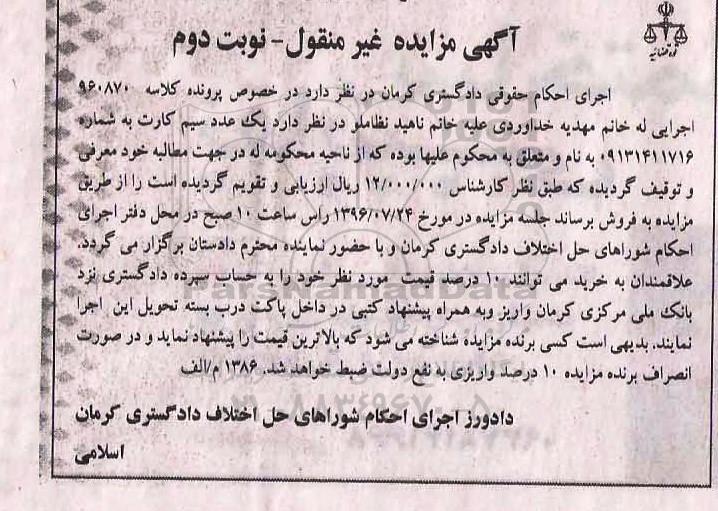 قوه قضائیه
آگهی مزایده غیر منقول - نوبت دوم
اجرای احکام حقوقی دادگستری کرمان در نظر دارد در خصوص پرونده کلاسه ۹۶۰۸۷۰
اجرایی له خانم مهدیه خداوردی علیه خانم ناهید نظاملو در نظر دارد یک عدد سیم کارت به شماره
۰۹۱۳۱۴۱۱۷۱۶ به نام و متعلق به محکوم علیها بوده که از ناحیه محکومه له در جهت مطالبه خود معرفی
و توقیف گردیده که طبق نظر کارشناس ۱۲/۰۰۰/۰۰۰ ریال ارزیابی و تقویم گردیده است را از طریق
مزایده به فروش برساند جلسه مزایده در مورخ ۱۳۹۶/۰۷/۲۴ راس ساعت ۱۰ صبح در محل دفتر اجرای
احکام شوراهای حل اختلاف دادگستری کرمان و با حضور نماینده محترم دادستان برگزار می گردد.
علاقمندان به خرید می توانند ۱۰ درصد قیمت مورد نظر خود را به حساب سپرده دادگستری نزد
بانک ملی مرکزی کرمان واریز وبه همراه پیشنهاد کتبی در داخل پاکت درب بسته تحویل این اجرا
نمایند. بدیهی است کسی برنده مزایده شناخته می شود که بالاترین قیمت را پیشنهاد نماید و در صورت
انصراف برنده مزایده ۱۰ درصد واریزی به نفع دولت ضبط خواهد شد. ۱۳۸۶ م/الف
دادورز اجرای احکام شوراهای حل اختلاف دادگستری کرمان
اسلامی